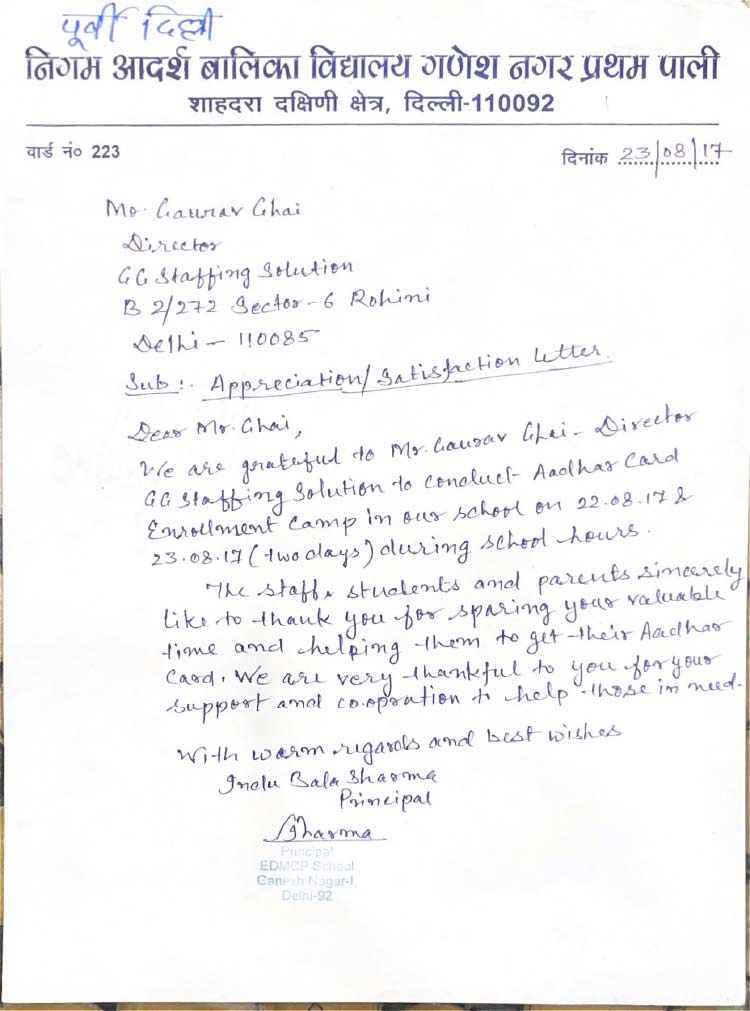 पूर्वी दिल्ली
निगम आदर्श बालिका विद्यालय गणेश नगर प्रथम पाली
शाहदरा दक्षिणी क्षेत्र, दिल्ली-110092
वार्ड नं० 223
दिनांक 23/08/17
Mr. Gaurav Ghai
Director
GG Staffing Solution
B 2/272 Sector-6 Rohini
Delhi - 110085
Sub:- Appreciation/Satisfaction Letter.
Dear Mr. Ghai,
We are grateful to Mr. Gaurav Ghai - Director
GG Staffing Solution to conduct Aadhar Card
Enrollment Camp in our school on 22.08.17 &
23.08.17 (two days) during school hours.
The staff, students and parents sincerely
like to thank you for sparing your valuable
time and helping them to get their Aadhar
Card. We are very thankful to you for your
support and co.opration to help those in need.
With warm regards and best wishes
Indu Bala Sharma
Principal
Sharma
Principal
EDMCP School
Ganesh Nagar-I,
Delhi-92